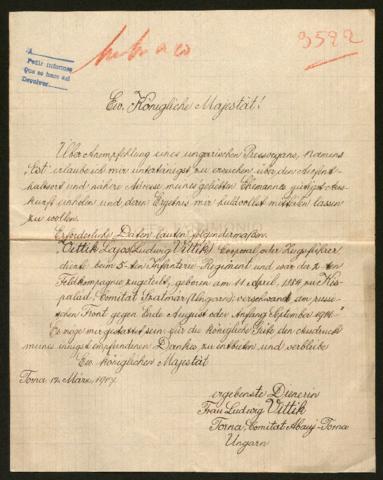 A
Pedir informes
que se hace así
Devolver
3592
Ew. Königliche Majestät!
Über Anempfehlung eines ungarischen Pressorgans, Namens
"Est" erlaube ich mir untertänigst zu ersuchen über den Aufent-
haltsort und nähere Adresse meines geliebten Ehemannes gütigst Aus-
kunft einholen und deren Ergebnis mir huldvollst mitteilen lassen
zu wollen.
Erforderliche Daten lauten folgendermaßen:
"Vittik Lajos (Ludwig Vittik) Corporal oder Zugsführer
diente beim 5-ten Infanterie-Regiment und war der 2-ten
Feldkompagnie zugeteilt, geboren am 11 April, 1884 zu Kis-
palad, Comitat Szatmár (Ungarn) verschwand am russi-
schen Front gegen Ende August oder Anfang September 1914."
Es möge mir gestattet sein, für die königliche Güte den Ausdruck
meines innigst empfundenen Dankes zu entbieten und verbleibe
Ew. königlichen Majestät
Torna 12. März, 1917.
ergebenste Dienerin
Frau Ludwig Vittik
Torna, Comitat Abauj-Torna
Ungarn